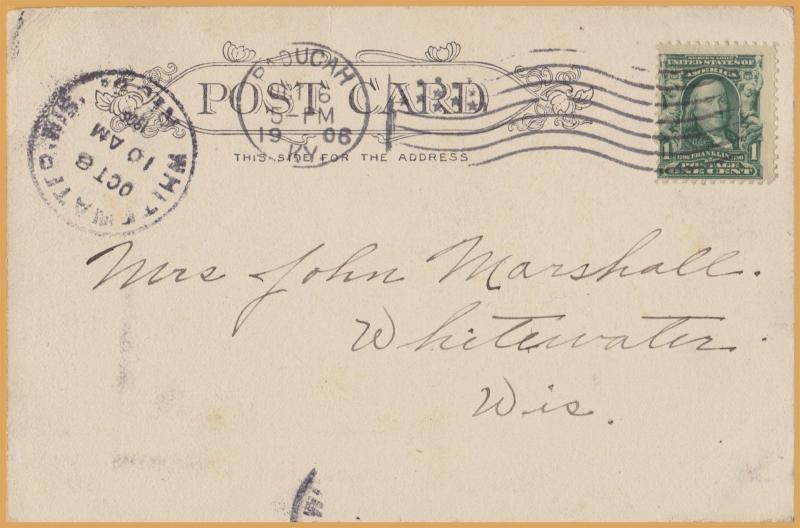 POST CARD
THIS SIDE FOR THE ADDRESS
PADUCAH
6
5-PM
1906
KY.
WHITEWATER, WIS.
OCT 8
10 AM
SERIES 1902
UNITED STATES OF
AMERICA
1 FRANKLIN 1
POSTAGE
ONE CENT
Mrs John Marshall.
Whitewater.
Wis.